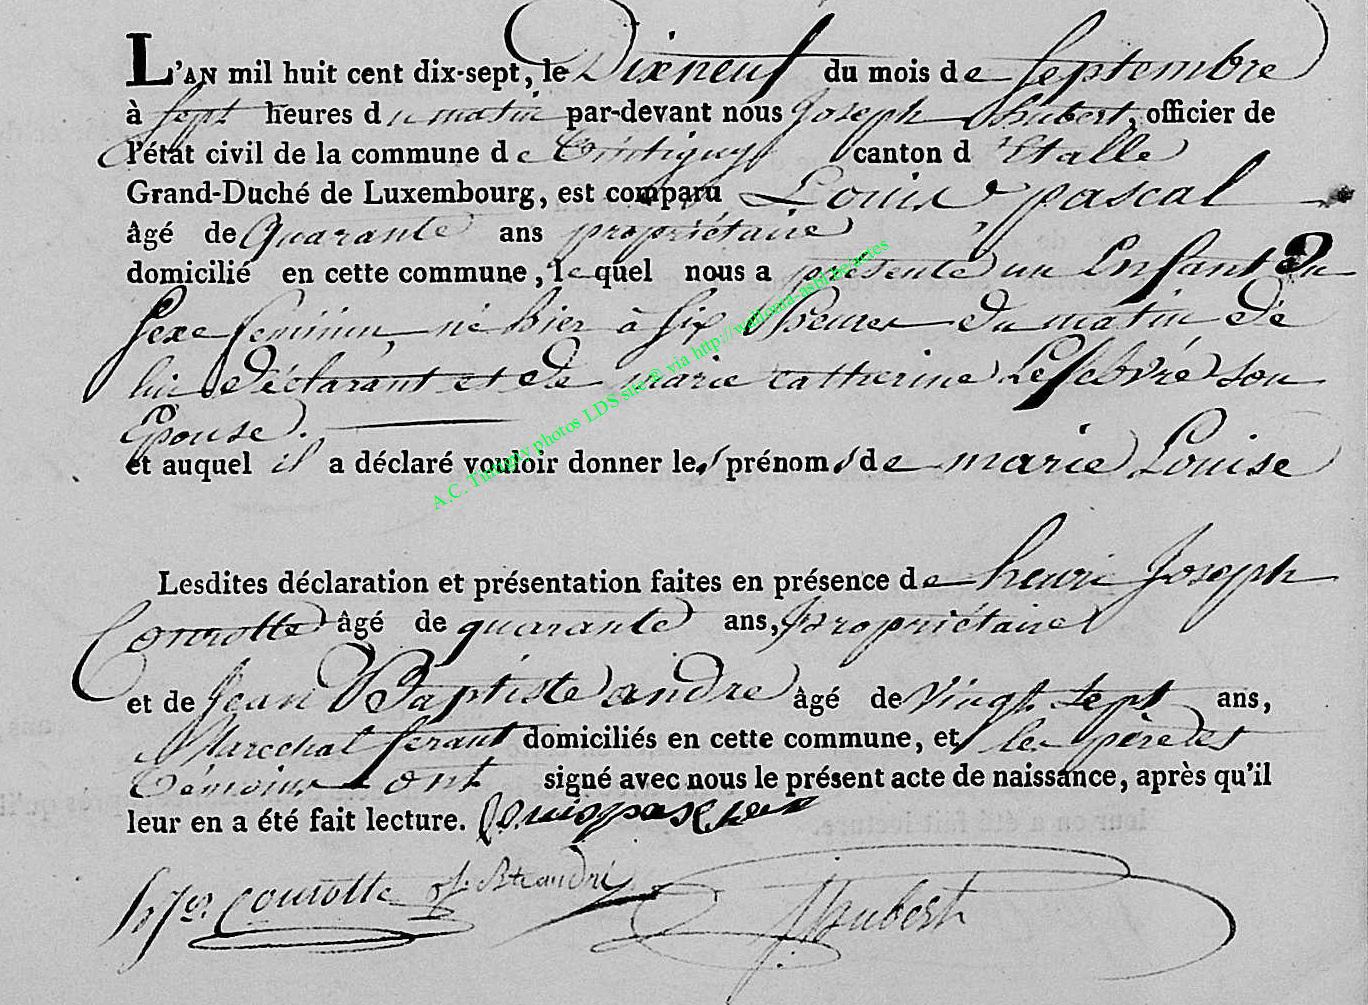 L'AN mil huit cent dix-sept, le Dixneuf du mois de septembre
à sept heures du matin par-devant nous Joseph hubert, officier de
l'état civil de la commune de Tintigny canton d'Etalle
Grand-Duché de Luxembourg, est comparu Louis pascal
âgé de Quarante ans propriétaire
domicilié en cette commune, lequel nous a présenté un Enfant du
sexe feminin, né hier à six heures du matin de
lui déclarant et de marie catherine Lefebvre son
Epouse.
et auquel il a déclaré vouloir donner les prénoms de marie Louise
Lesdites déclaration et présentation faites en présence de henri Joseph
Courotte âgé de quarante ans, propriétaire
et de Jean Baptiste andre âgé de vingt sept ans,
Marechal ferant domiciliés en cette commune, et les père et
témoins ont signé avec nous le présent acte de naissance, après qu'il
leur en a été fait lecture. Louis
courotte andré hubert
A.C. Tintigny photos LDS site @ via http://wallonia-asbl.be/actes